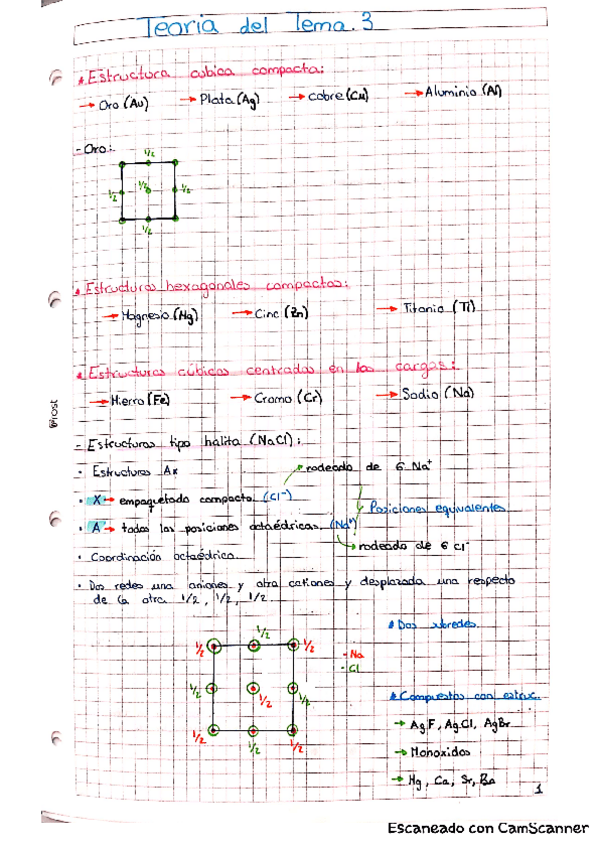 Teoria del Tema.3
Estructura cubica compacta:
→ Oro (Au) → Plata (Ag) → cobre (Cu) → Aluminio (Al)
- Oro:
1/2
1/2 1/2 1/2
1/2
Estructuras hexagonales compactas:
→ Magnesio (Mg) → Cinc (Zn) → Titanio (Ti)
Estructuras cúbicas centradas en las cargas:
→ Hierro (Fe) → Cromo (Cr) → Sodio (Na)
- Estructuras tipo halita (NaCl):
· Estructuras Ax
rodeado de 6 Na⁺
· X → empaquetado compacto (Cl⁻)
Posiciones equivalentes
· A → todas las posiciones octaédricas (Na⁺)
rodeado de 6 Cl⁻
· Coordinación octaédrica
· Dos redes una aniones y otra cationes y desplazada una respecto
de la otra 1/2, 1/2, 1/2
Dos subredes
1/2 1/2 1/2
- Na
- Cl
1/2 1/2 1/2
1/2 1/2 1/2
Compuestos con estruc.
→ AgF, AgCl, AgBr
→ Monoxidos
→ Mg, Ca, Sr, Ba
1
Escaneado con CamScanner